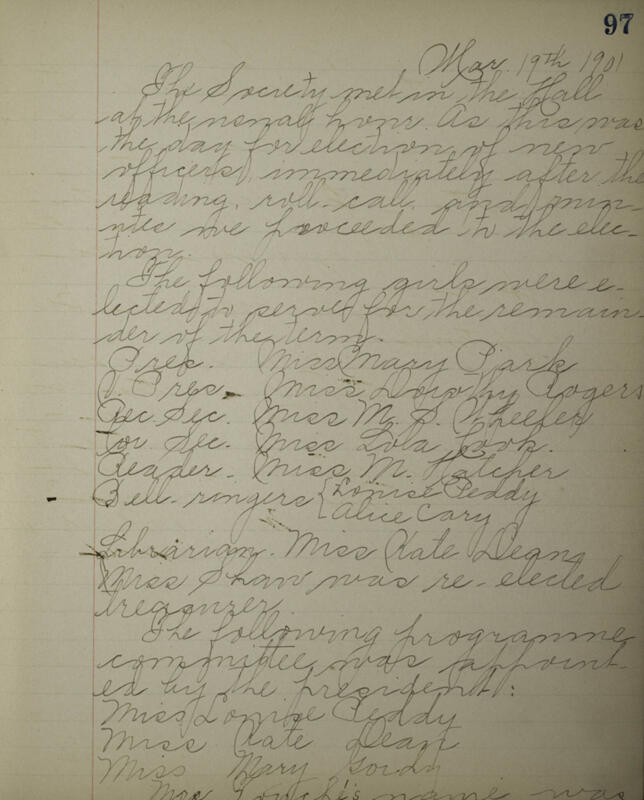 97
Mar. 19th 1901
The Society met in the Hall
at the usual hour. As this was
the day for election of new
officers, immediately after the
reading, roll-call, and min-
utes we proceeded to the elec-
tion.
The following girls were e-
lected to serve for the remain-
der of the term.
Pres. Miss Mary Park
V. Pres. Miss Dorothy Rogers
Rec Sec. Miss M. S. Pheefer
Cor Sec. Miss Lola Cook.
Reader. Miss M. Hatcher
Bell-ringers { Louise Peddy
Alice Cary
Librarian. Miss Kate Dean
Miss Shaw was re-elected
treasurer.
The following programme
committee was appoint-
ed by the president:
Miss Louise Peddy
Miss Kate Dean
Miss Mary
Mrs. name was